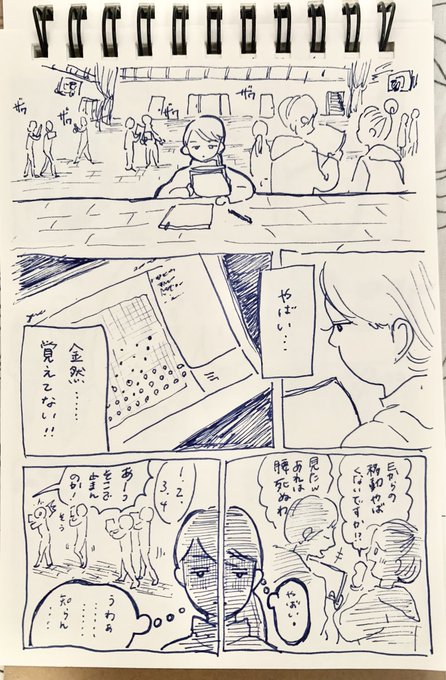 ザワ
ザワ
ザワ
やばい・・
全然……
覚えてない!!
Eからの
移動やば
くないですか!?
見たw
あれは
腰死ぬわ
やばい・・
1.2.
3.4
あーっ
そこで
止まん
のか!
そう
うわぁ
………
知らん
……